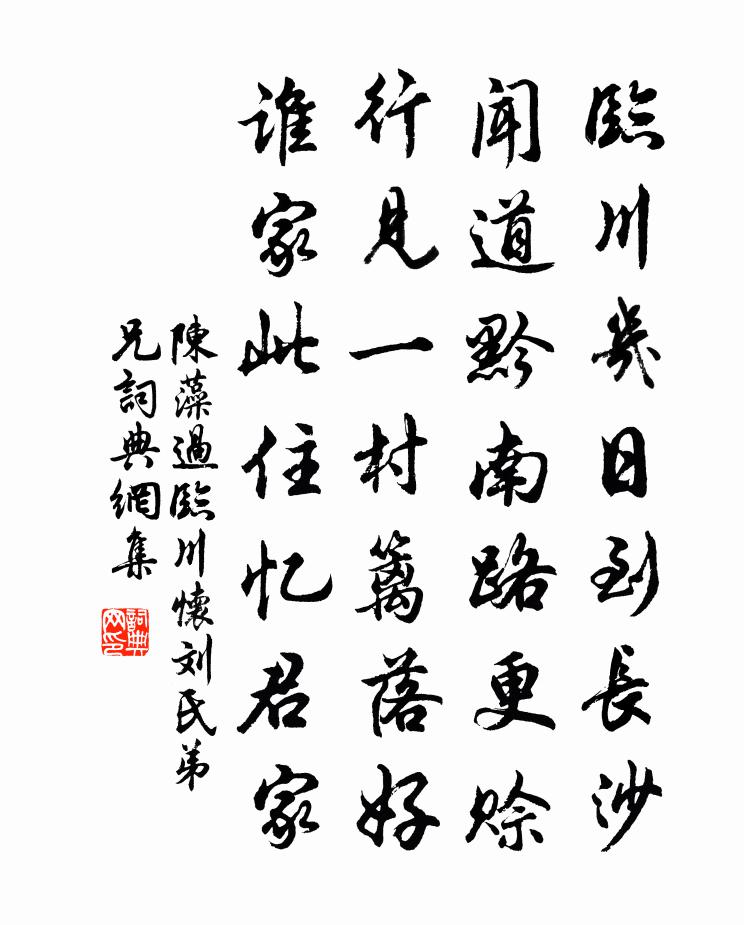 臨川幾日到長沙
聞道黔南路更賒
行見一村籬落好
誰家此住忆君家
陳藻過臨川懷刘氏弟
兄詞典網集
詞典網印